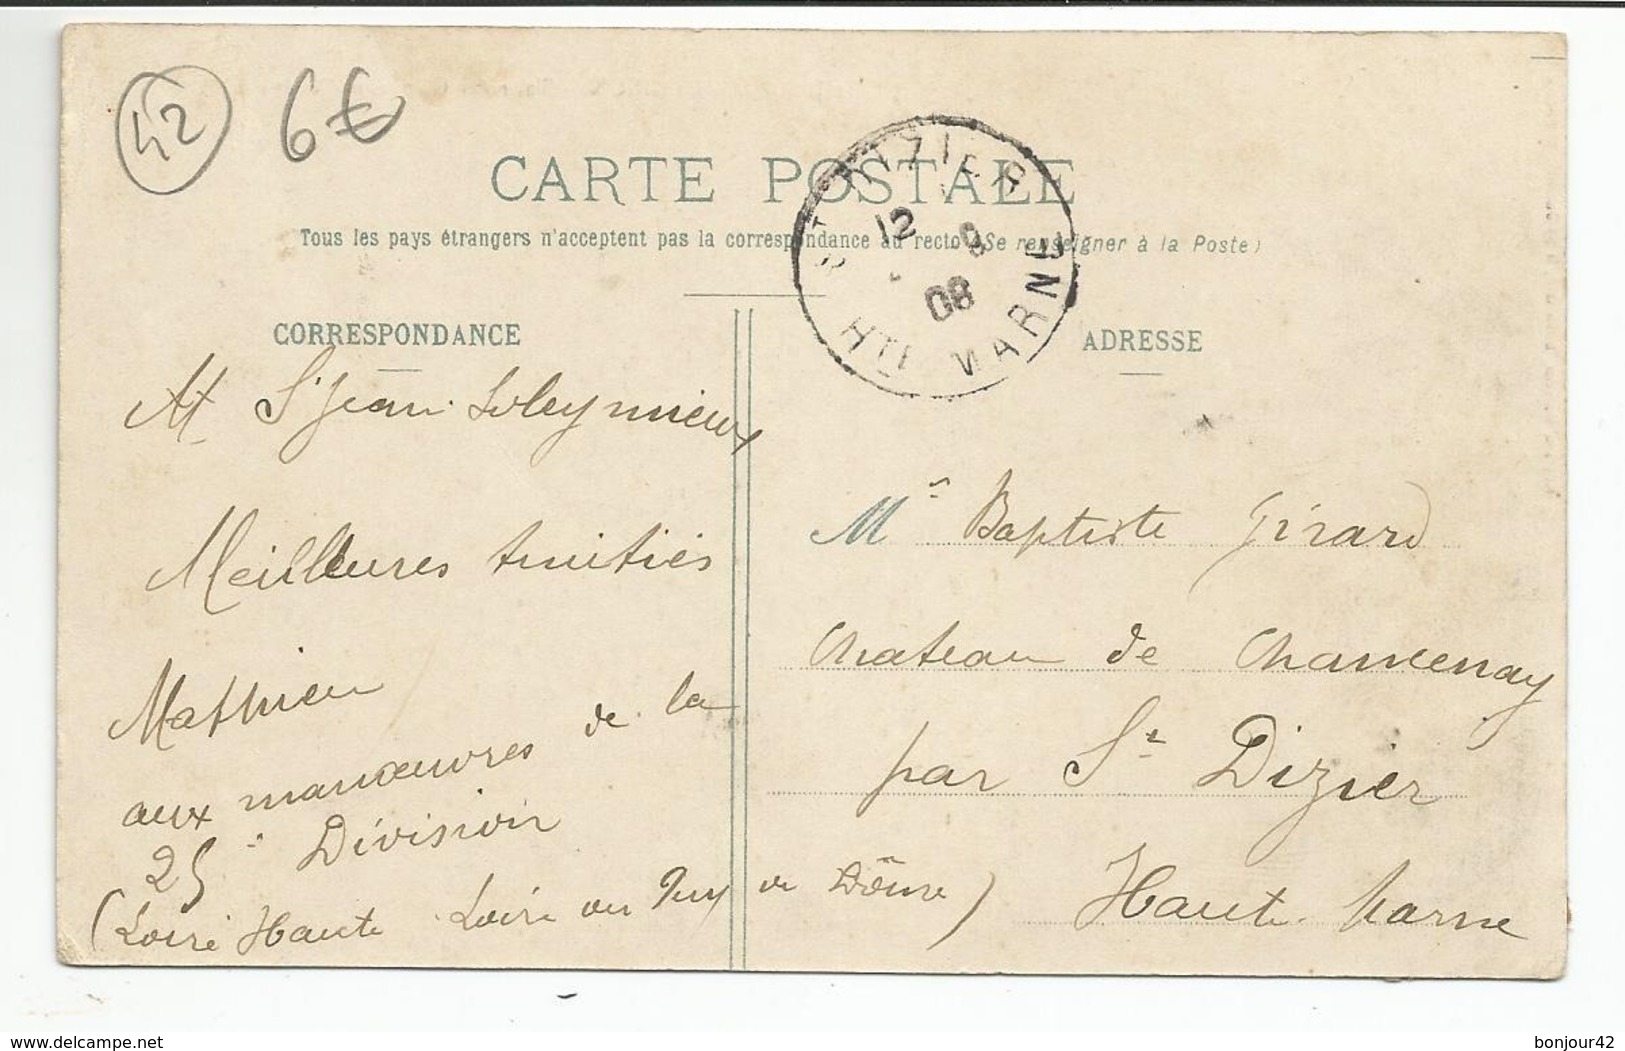 42 6€
CARTE POSTALE
Tous les pays étrangers n'acceptent pas la correspondance au recto. (Se renseigner à la Poste)
ST DIZIER
12 9
08
HTE MARNE
CORRESPONDANCE
ADRESSE
At St Jean Soleymieux
Meilleures Amitiés
Mathieu
aux manœuvres de la
25e Division
(Loire Haute Loire ou Puy de Dôme)
Mr Baptiste Girard
Chateau de Chamcenay
par St Dizier
Haute Marne
www.delcampe.net
bonjour42